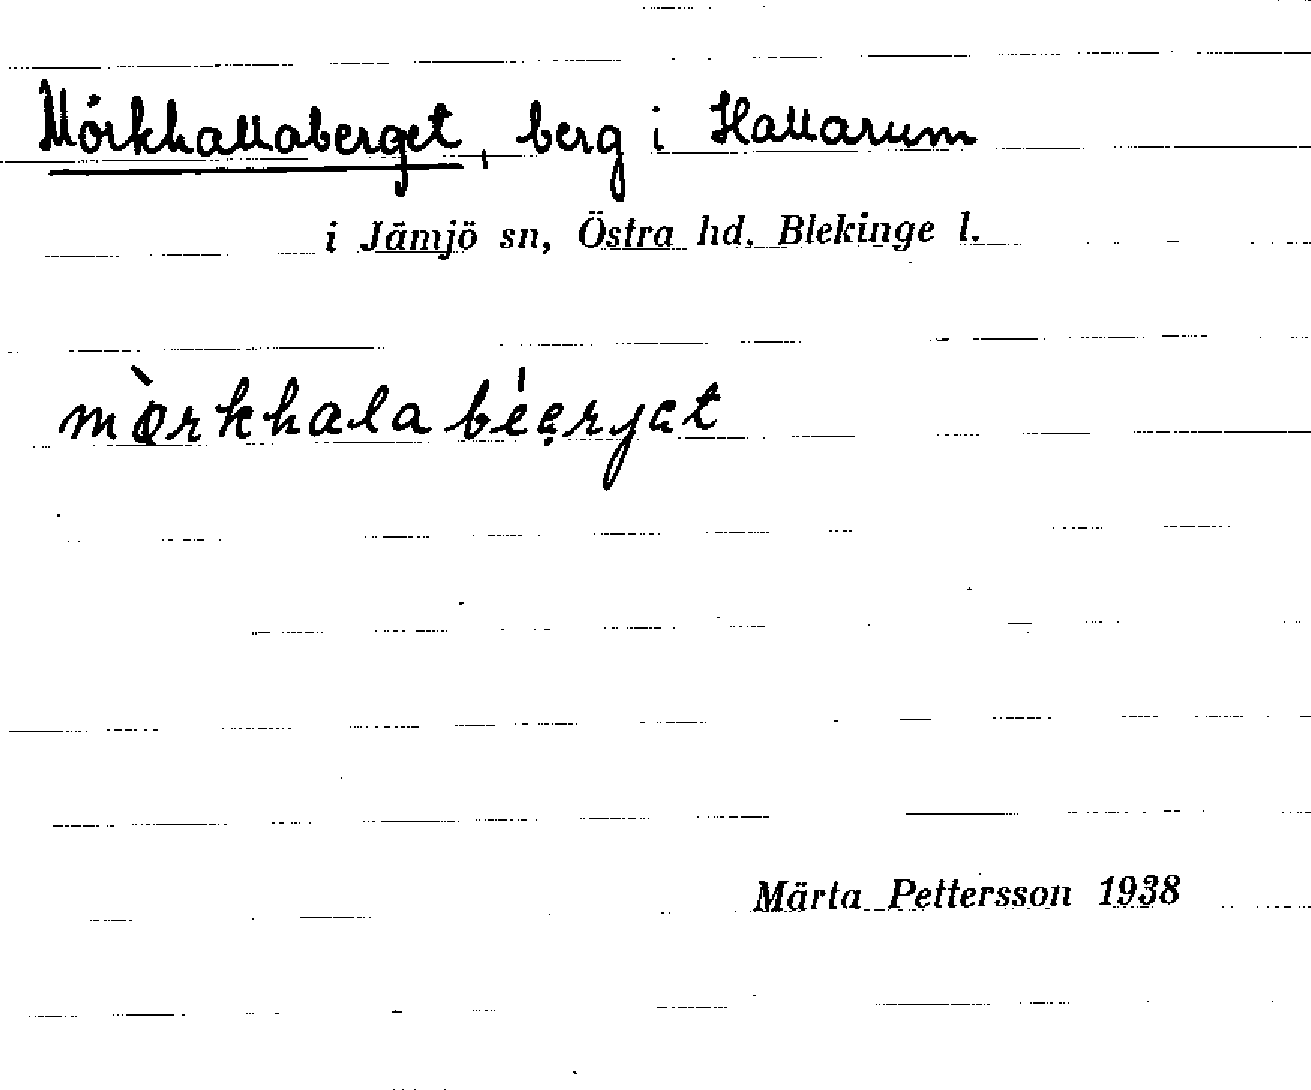 Mörkhallaberget, berg i Hallarum
i Jämjö sn, Östra hd. Blekinge l.
mòrkhalabéerjet
Märta Pettersson 1938